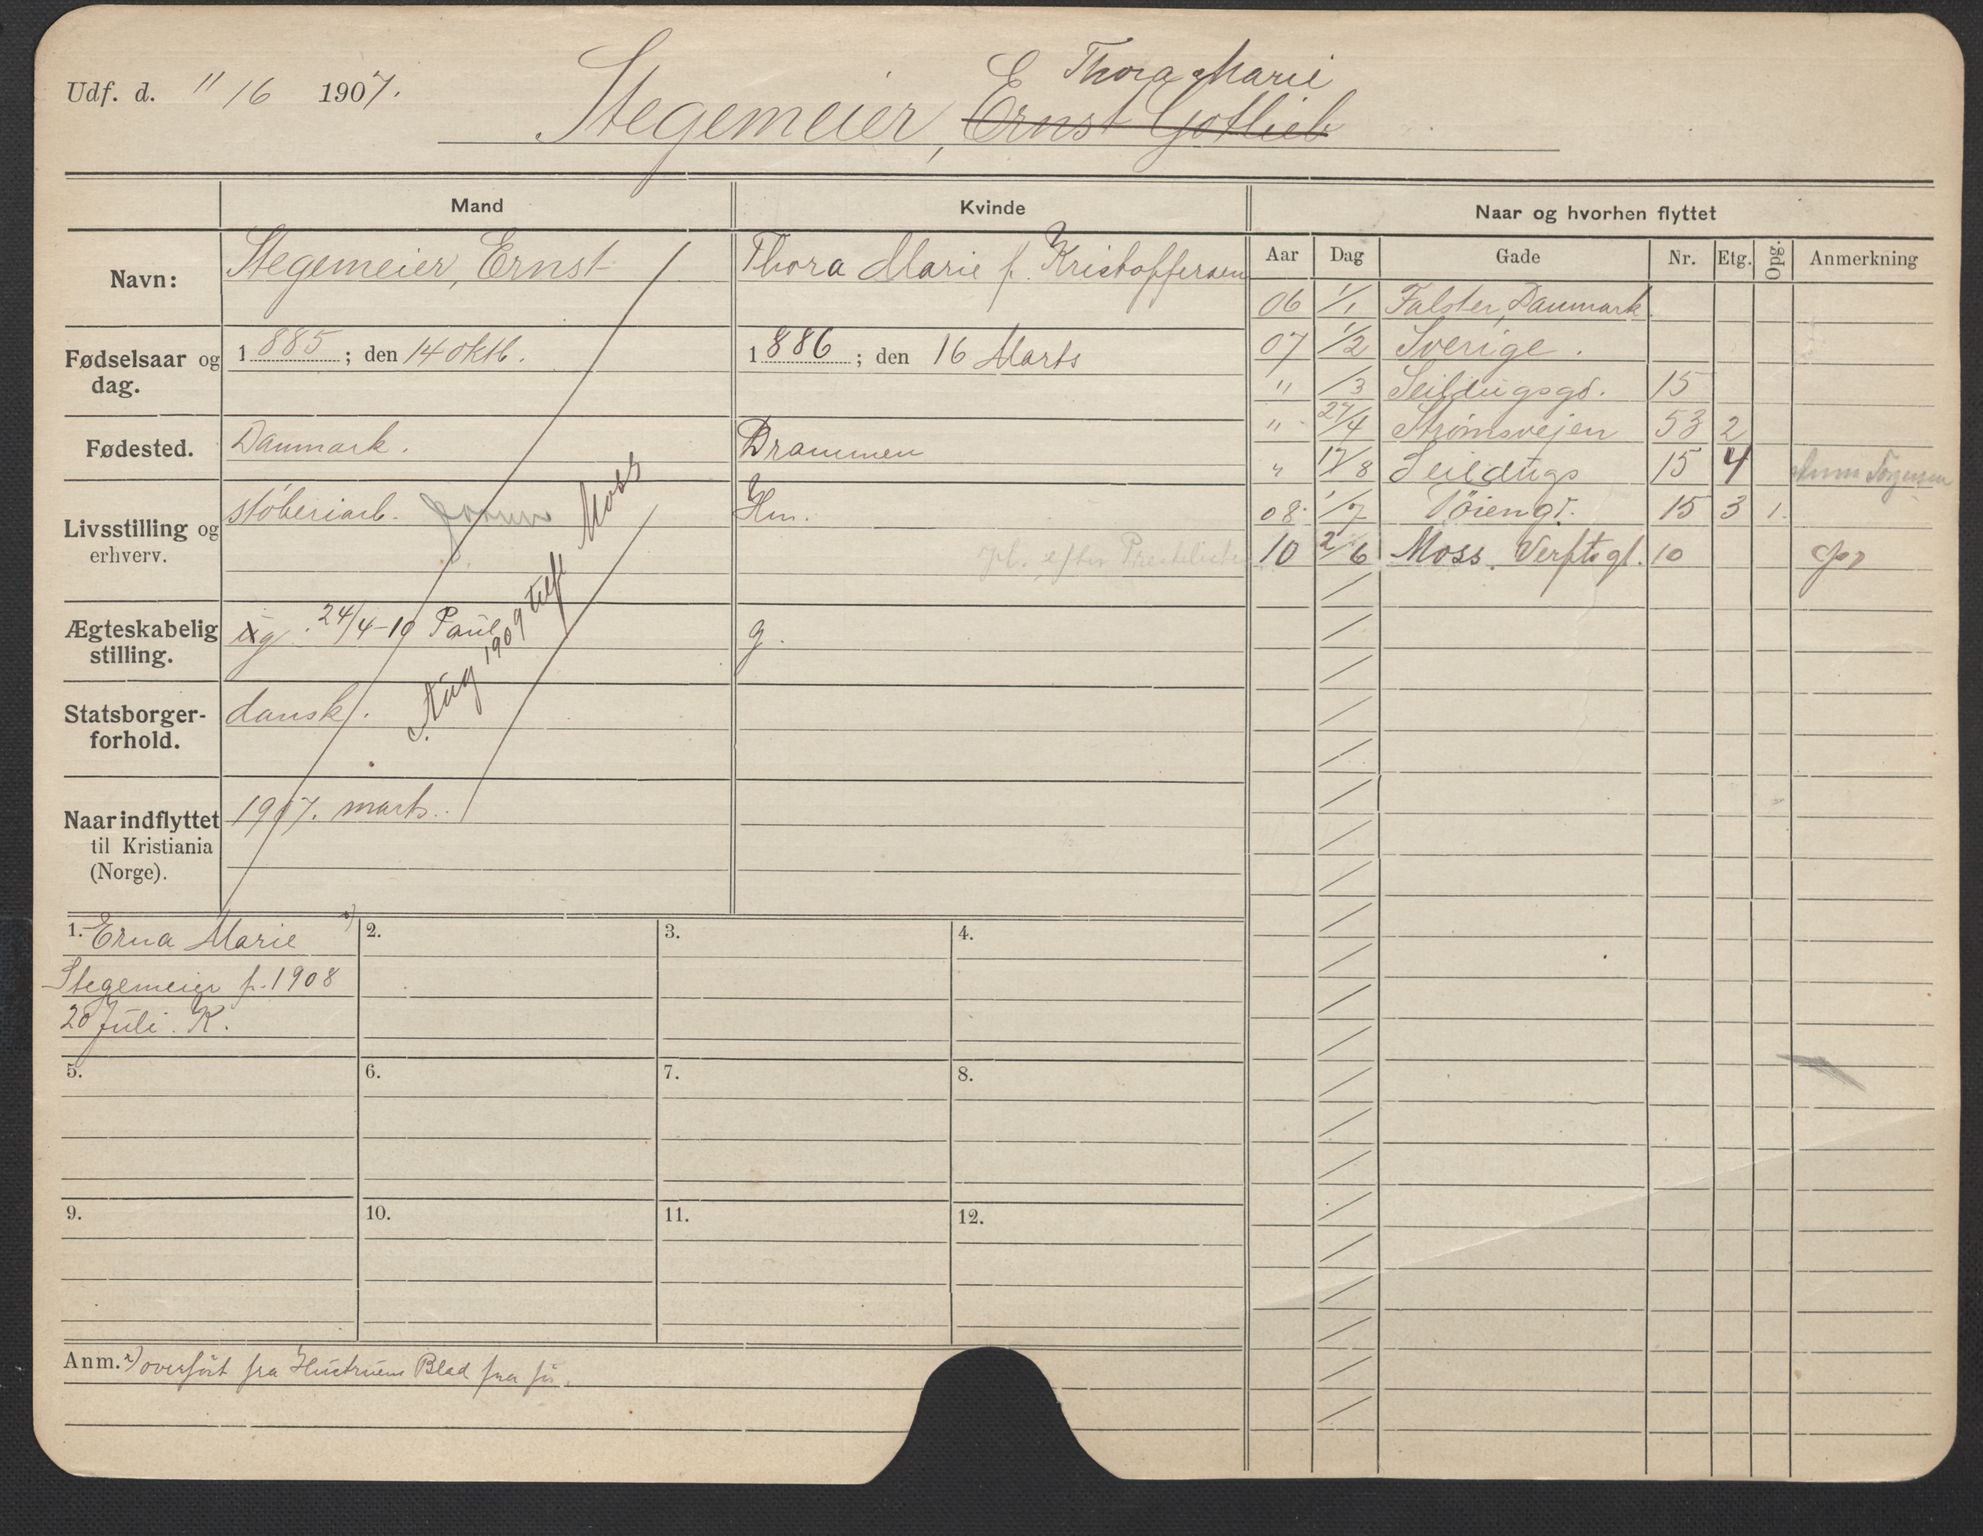 Udf. d. " 16 1907.
E Thora Marie
Stegemeier, Ernst Gotlieb
Mand
Kvinde
Naar og hvorhen flyttet
Navn:
Stegemeier, Ernst
Thora Marie f. Kristoffersen
Aar Dag Gade Nr. Etg. Opg. Anmerkning
06 1/1 Falster, Danmark.
Fødselsaar og dag.
1885; den 14 oktb.
1886; den 16 Marts
07 1/2 Sverige.
" /3 Seildugsgd. 15
Fødested.
Danmark.
Drammen
" 27/4 Strømsvejen 53 2
" 17/8 Seildugs 15 4
Livsstilling og erhverv.
støberiarb.
Hm.
08 1/7 Vøiengt. 15 3 1.
10 2/6 Moss. Verftsgt. 10
Ægteskabelig stilling.
ug 24/4-10 Paul
g.
Aug 1909 til Moss
Statsborger-
forhold.
dansk.
Naar indflyttet
til Kristiania
(Norge).
1907. marts.
1. Erna Marie
Stegemeier f. 1908
20 Juli. K.
2.
3.
4.
5.
6.
7.
8.
9.
10.
11.
12.
Anm. overført fra Hustruens Blad